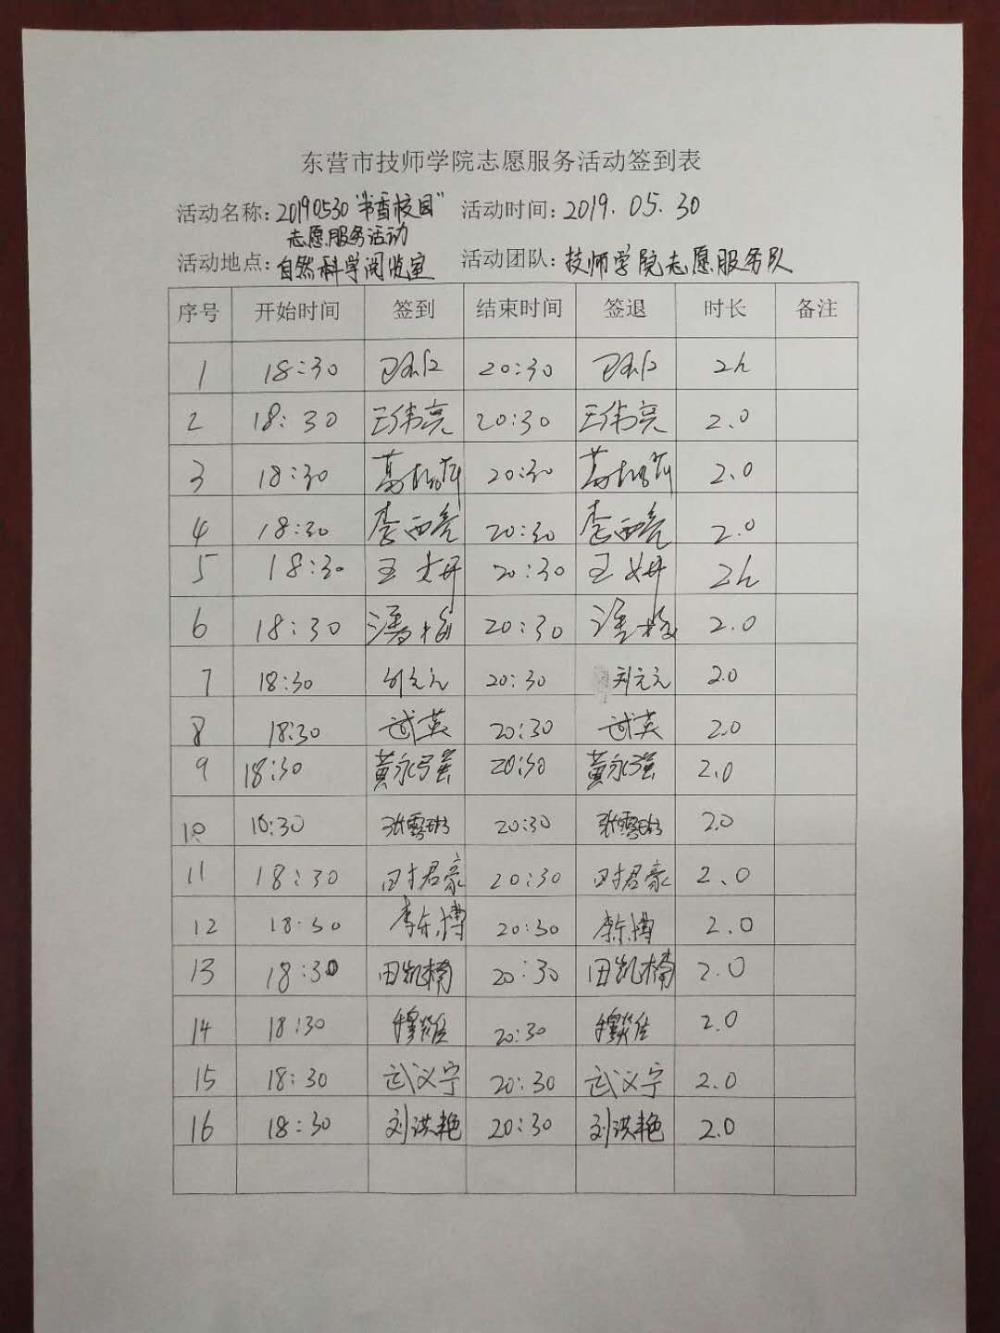 东营市技师学院志愿服务活动签到表
活动名称: 20190530"书香校园" 活动时间: 2019.05.30
志愿服务活动
活动地点: 自然科学阅览室 活动团队: 技师学院志愿服务队
序号 开始时间 签到 结束时间 签退 时长 备注
1 18:30 20:30 2h
2 18:30 王伟亮 20:30 王伟亮 2.0
3 18:30 20:30 2.0
4 18:30 李西亮 20:30 李西亮 2.0
5 18:30 王 20:30 王 2h
6 18:30 潘梅 20:30 潘梅 2.0
7 18:30 刘元元 20:30 刘元元 2.0
8 18:30 武英 20:30 武英 2.0
9 18:30 黄永强 20:30 黄永强 2.0
10 18:30 张雪 20:30 张雪 2.0
11 18:30 时君豪 20:30 时君豪 2.0
12 18:30 李东博 20:30 李东博 2.0
13 18:30 田凯楠 20:30 田凯楠 2.0
14 18:30 穆 20:30 穆 2.0
15 18:30 武汉宁 20:30 武汉宁 2.0
16 18:30 刘洪艳 20:30 刘洪艳 2.0